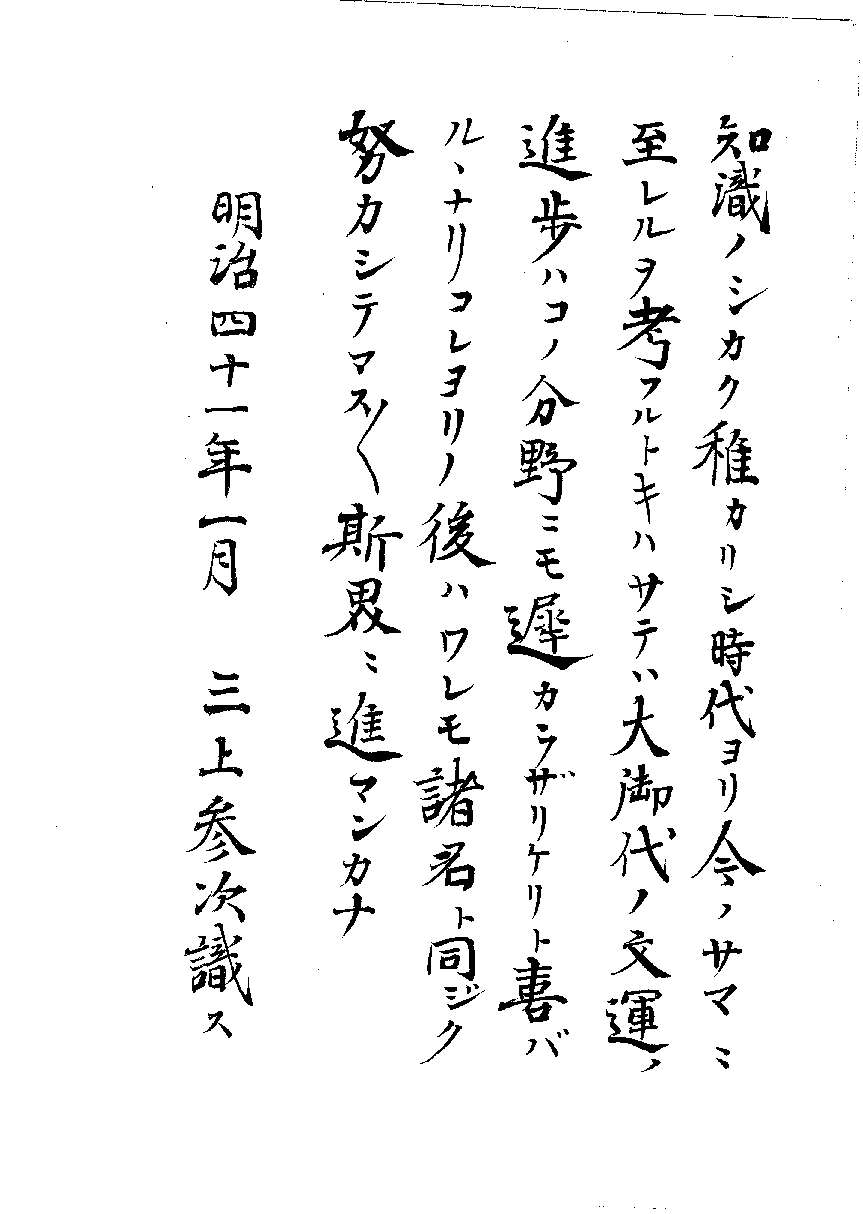 知識ノシカク稚カリシ時代ヨリ今ノサマニ
至レルヲ考フルトキハサテハ大御代ノ文運ノ
進歩ハコノ分野ニモ遅カラザリケリト喜バ
ルヽナリコレヨリノ後ハワレモ諸君ト同ジク
努力シテマス〴〵斯界ニ進マンカナ
明治四十一年一月　三上参次識ス